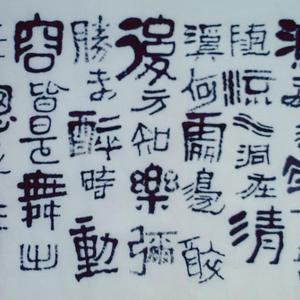 随流水洞在清
溪何處邊醉
後方知樂彌
勝未醉時動
容皆是舞出